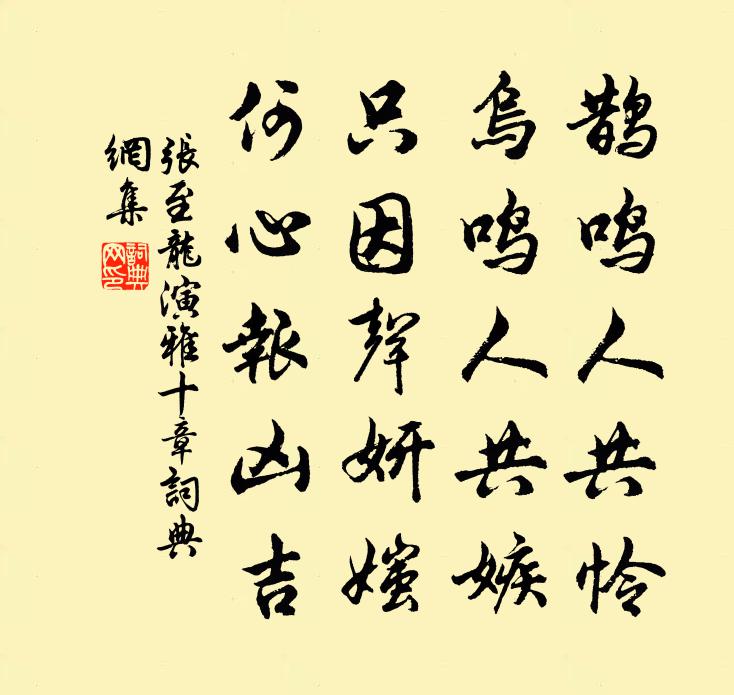 鹊鸣人共怜
烏鸣人共嫉
只因聲妍媸
何心報凶吉
張至龍演雅十章詞典
網集
詞典
网印